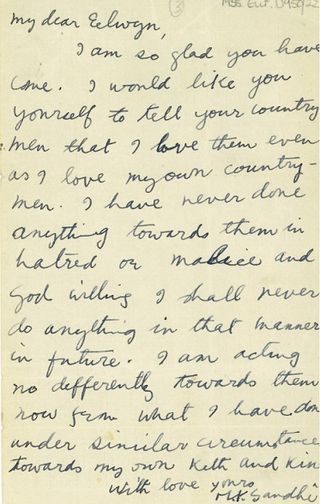 ③ MSS. EUR. D950/22
my dear Eelwyn,
I am so glad you have
come. I would like you
yourself to tell your country
men that I love them even
as I love my own country-
men. I have never done
anything towards them in
hatred or malice and
God willing I shall never
do anything in that manner
in future. I am acting
no differently towards them
now from what I have done
under similar circumstance
towards my own kith and kin
with love yours
M.K. Gandhi